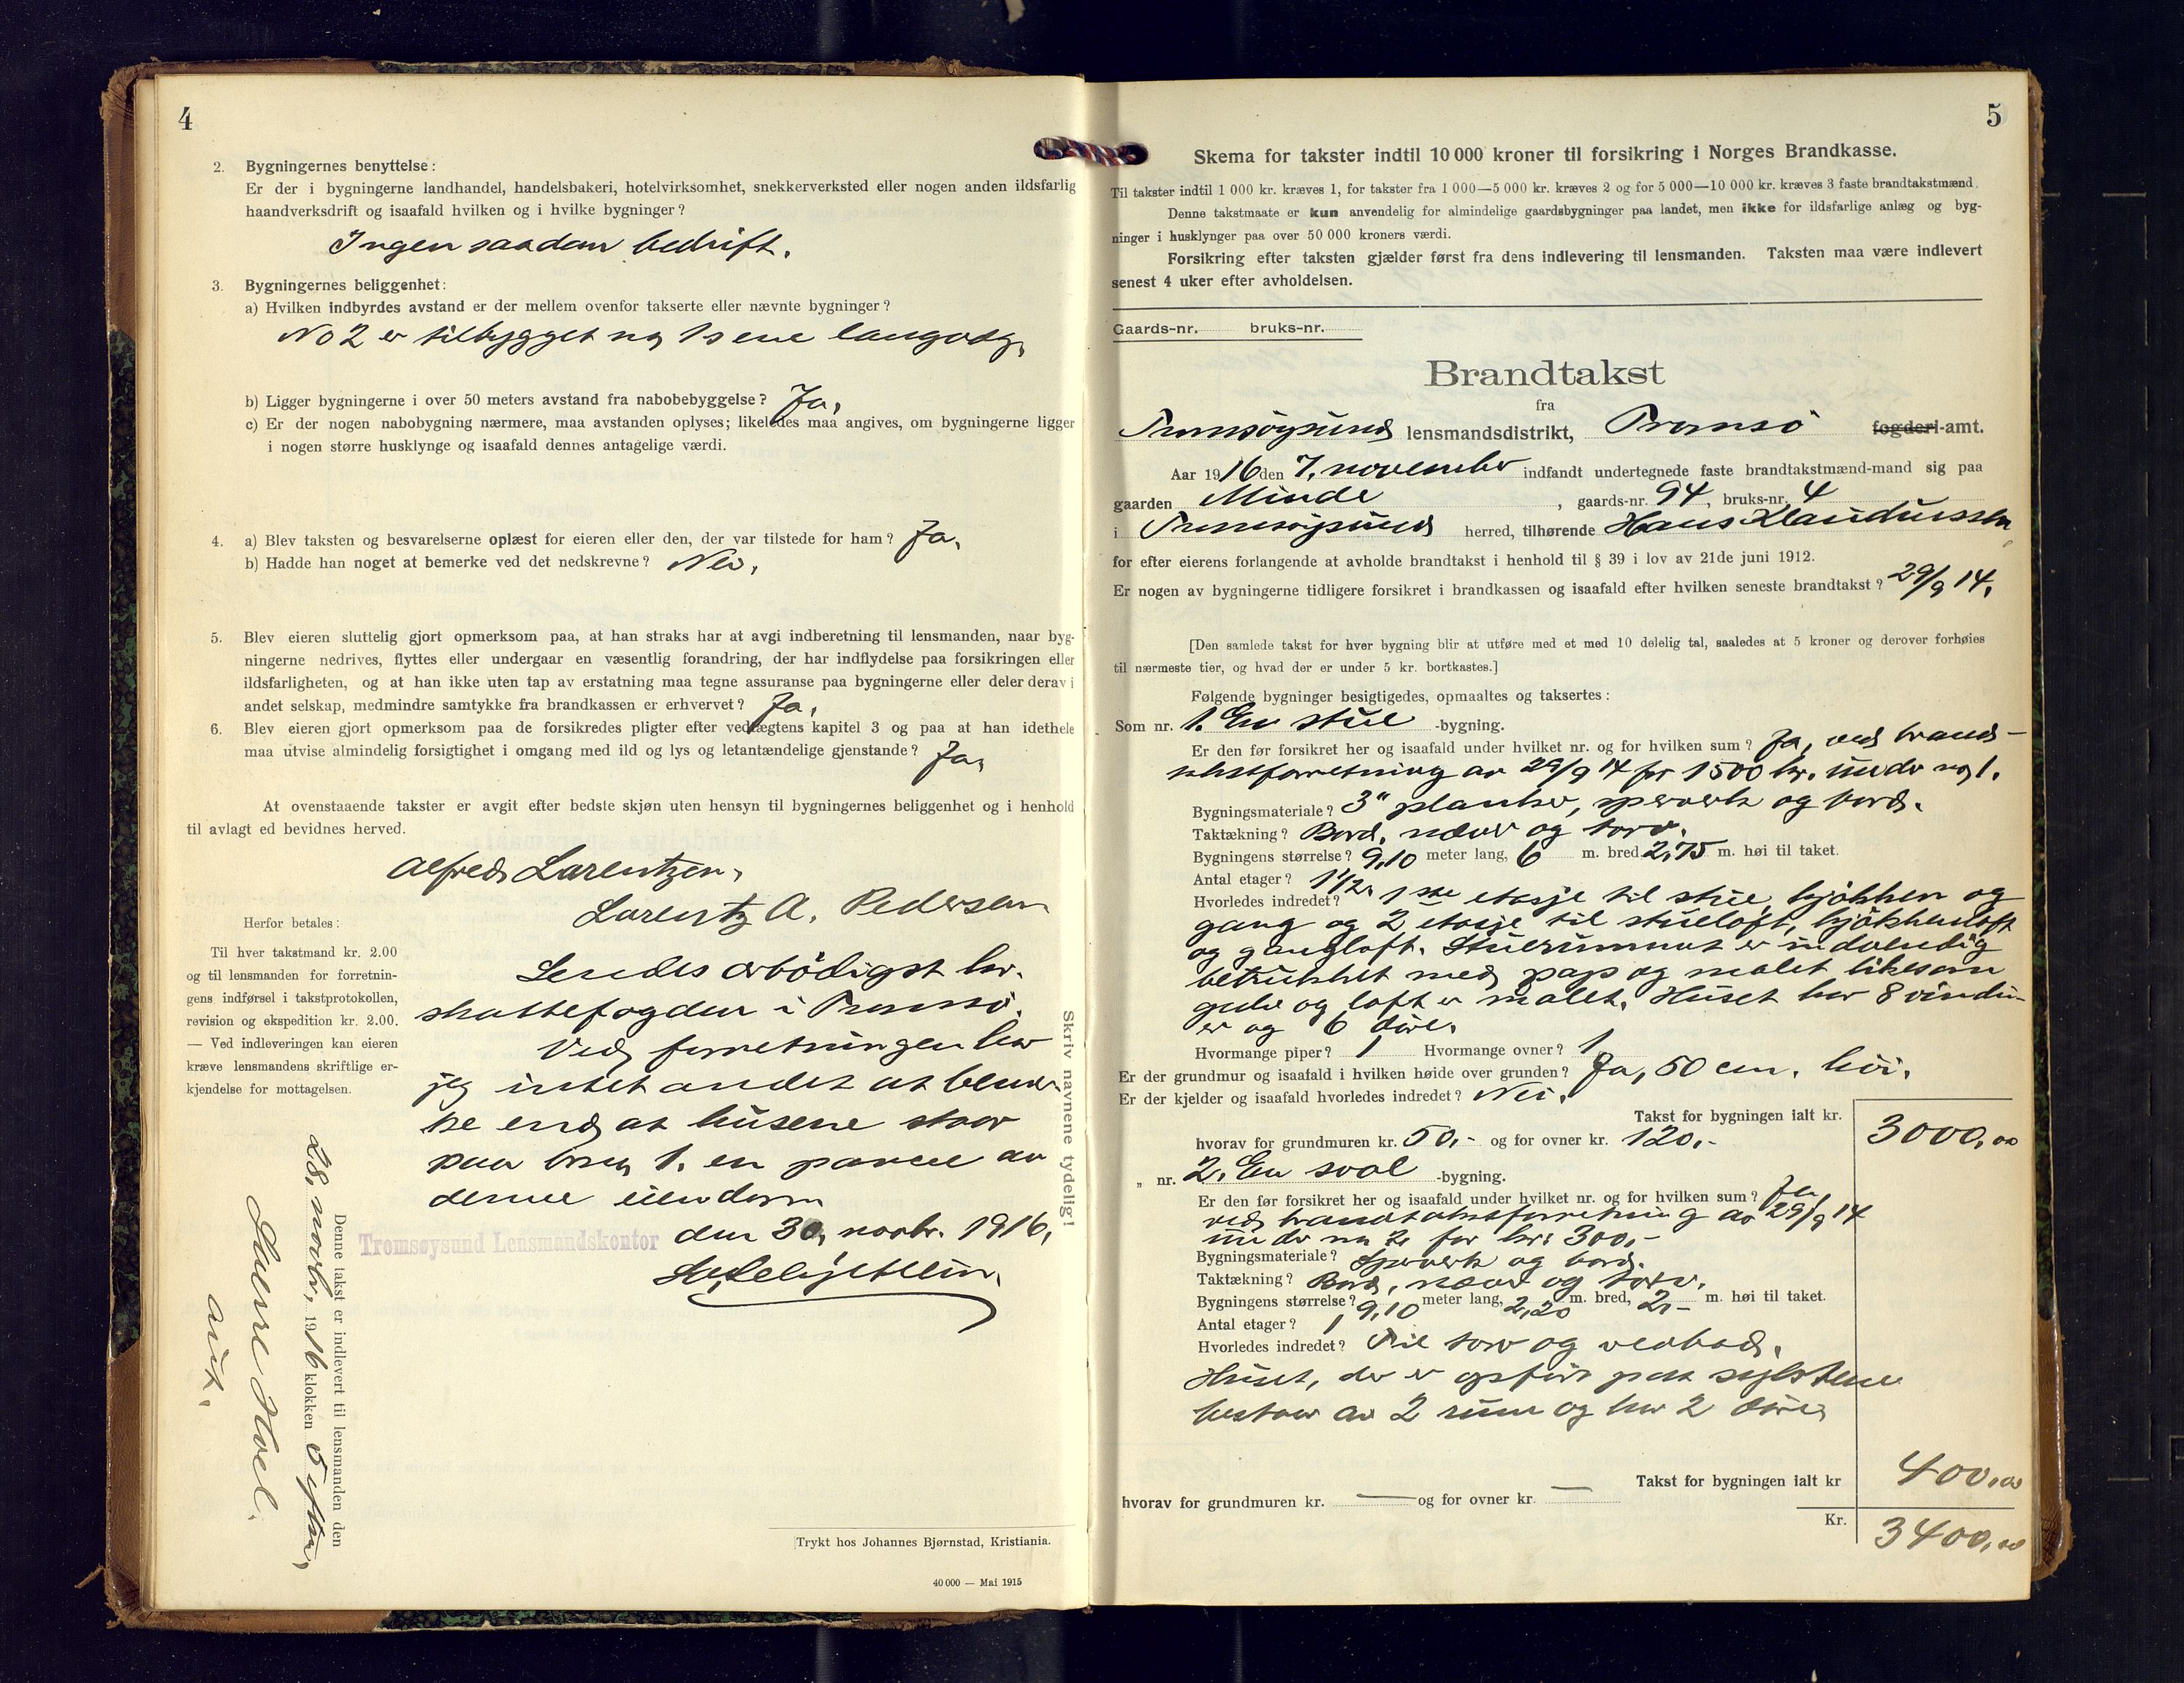 4
2. Bygningernes benyttelse:
Er der i bygningerne landhandel, handelsbakeri, hotelvirksomhet, snekkerverksted eller nogen anden ildsfarlig
haandverksdrift og isaafald hvilken og i hvilke bygninger?
Ingen saadan bedrift.
3. Bygningernes beliggenhet:
a) Hvilken indbyrdes avstand er der mellem ovenfor takserte eller nævnte bygninger?
No 2 er tilbygget no 1s ene langvæg.
b) Ligger bygningerne i over 50 meters avstand fra nabobebyggelse? Ja.
c) Er der nogen nabobygning nærmere, maa avstanden oplyses; likeledes maa angives, om bygningerne ligger
i nogen større husklynge og isaafald dennes antagelige værdi.
4. a) Blev taksten og besvarelserne oplæst for eieren eller den, der var tilstede for ham? Ja.
b) Hadde han noget at bemerke ved det nedskrevne? Nei.
5. Blev eieren sluttelig gjort opmerksom paa, at han straks har at avgi indberetning til lensmanden, naar byg-
ningerne nedrives, flyttes eller undergaar en væsentlig forandring, der har indflydelse paa forsikringen eller
ildsfarligheten, og at han ikke uten tap av erstatning maa tegne assuranse paa bygningerne eller deler derav i
andet selskap, medmindre samtykke fra brandkassen er erhvervet? Ja.
6. Blev eieren gjort opmerksom paa de forsikredes pligter efter vedtægtens kapitel 3 og paa at han idethele
maa utvise almindelig forsigtighet i omgang med ild og lys og letantændelige gjenstande? Ja.
At ovenstaaende takster er avgit efter bedste skjøn uten hensyn til bygningernes beliggenhet og i henhold
til avlagt ed bevidnes herved.
Alfred Larentzen.
Larentz A. Pedersen
Herfor betales:
Til hver takstmand kr. 2.00
og til lensmanden for forretnin-
gens indførsel i takstprotokollen,
revision og ekspedition kr. 2.00.
— Ved indleveringen kan eieren
kræve lensmandens skriftlige er-
kjendelse for mottagelsen.
Sendes ærbödigst hr.
skattefogden i Tromsö.
Ved forretningen har
jeg intet andet at bemer-
ke end at husene staar
paa brn. 1. en parcel av
denne eiendom
Tromsøysund Lensmandskontor den 30. novbr. 1916.
Skriv navnene tydelig!
Denne takst er indlevert til lensmanden den
28. novbr. 1916 klokken 5 eftm.
Trykt hos Johannes Bjørnstad, Kristiania.
40 000 — Mai 1915
5
Skema for takster indtil 10 000 kroner til forsikring i Norges Brandkasse.
Til takster indtil 1 000 kr. kræves 1, for takster fra 1 000—5 000 kr. kræves 2 og for 5 000—10 000 kr. kræves 3 faste brandtakstmænd.
Denne takstmaate er kun anvendelig for almindelige gaardsbygninger paa landet, men ikke for ildsfarlige anlæg og byg-
ninger i husklynger paa over 50 000 kroners værdi.
Forsikring efter taksten gjælder først fra dens indlevering til lensmanden. Taksten maa være indlevert
senest 4 uker efter avholdelsen.
Gaards-nr. bruks-nr.
Brandtakst
fra
Tromsöysund lensmandsdistrikt, Tromsö fogderi-amt.
Aar 1916 den 7. november indfandt undertegnede faste brandtakstmænd-mand sig paa
gaarden Minde, gaards-nr. 94, bruks-nr. 4
i Tromsöysund herred, tilhørende Hans Klaudiussen
for efter eierens forlangende at avholde brandtakst i henhold til § 39 i lov av 21de juni 1912.
Er nogen av bygningerne tidligere forsikret i brandkassen og isaafald efter hvilken seneste brandtakst? 29/9 14.
[Den samlede takst for hver bygning blir at utføre med et med 10 delelig tal, saaledes at 5 kroner og derover forhøies
til nærmeste tier, og hvad der er under 5 kr. bortkastes.]
Følgende bygninger besigtigedes, opmaaltes og taksertes:
Som nr. 1. En stue -bygning.
Er den før forsikret her og isaafald under hvilket nr. og for hvilken sum? Ja, ved brand-
takstforretning av 29/9 14 for 1500 kr. under no 1.
Bygningsmateriale? 3" planker, sperverk og bord.
Taktækning? Bord, næver og torv.
Bygningens størrelse? 9,10 meter lang, 6 m. bred 2,75 m. høi til taket.
Antal etager? 1 1/2.
Hvorledes indredet? 1ste etasje til stue, kjökken og
gang og 2 etasje til stueloft, kjökkenloft
og gangloft. Stuerummet er indvendig
betrukket med pap og malet likesom
gulv og loft er malet. Huset har 8 vindu-
er og 6 döre.
Hvormange piper? 1 Hvormange ovner? 1
Er der grundmur og isaafald i hvilken høide over grunden? Ja, 50 cm. höi.
Er der kjelder og isaafald hvorledes indredet? Nei.
Takst for bygningen ialt kr. 3000,00
hvorav for grundmuren kr. 50,- og for ovner kr. 120,-
„ nr. 2. En sval -bygning.
Er den før forsikret her og isaafald under hvilket nr. og for hvilken sum? Ja
ved brandtakstforretning av 29/9 14
under no 2 for kr. 300,-
Bygningsmateriale? Sperverk og bord.
Taktækning? Bord, næver og torv.
Bygningens størrelse? 9,10 meter lang, 2,20 m. bred, 2,- m. høi til taket.
Antal etager? 1
Hvorledes indredet? Til torv og vedbod.
Huset, der er opfört paa sylstene
bestaar av 2 rum og har 2 döre
Takst for bygningen ialt kr 400,00
hvorav for grundmuren kr. — og for ovner kr. —
Kr. 3400,00